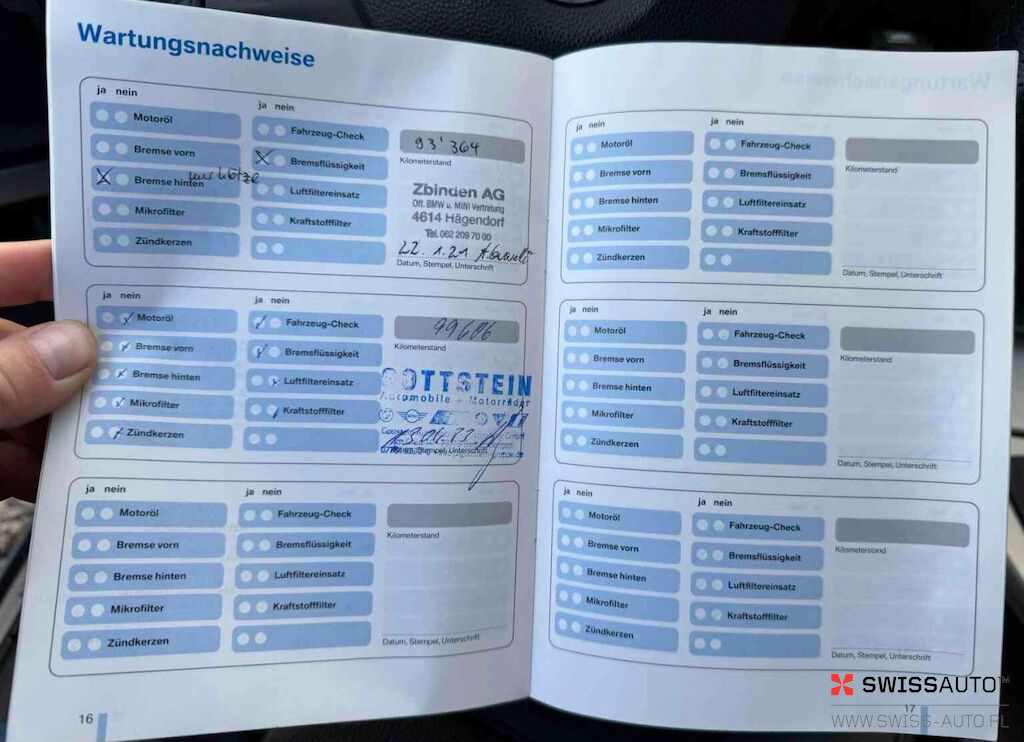 Wartungsnachweise
ja nein
Motoröl
Bremse vorn
Bremse hinten
Mikrofilter
Zündkerzen
ja nein
Fahrzeug-Check
Bremsflüssigkeit
Luftfiltereinsatz
Kraftstofffilter
93'364
Kilometerstand
Zbinden AG
Off. BMW u. MINI Vertretung
4614 Hägendorf
Tel. 062 209 70 00
22.1.21
Datum, Stempel, Unterschrift
ja nein
Motoröl
Bremse vorn
Bremse hinten
Mikrofilter
Zündkerzen
ja nein
Fahrzeug-Check
Bremsflüssigkeit
Luftfiltereinsatz
Kraftstofffilter
99606
Kilometerstand
GOTTSTEIN
Automobile + Motorräder
Stempel, Unterschrift
ja nein
Motoröl
Bremse vorn
Bremse hinten
Mikrofilter
Zündkerzen
ja nein
Fahrzeug-Check
Bremsflüssigkeit
Luftfiltereinsatz
Kraftstofffilter
Kilometerstand
Datum, Stempel, Unterschrift
16
ja nein
Motoröl
Bremse vorn
Bremse hinten
Mikrofilter
Zündkerzen
ja nein
Fahrzeug-Check
Bremsflüssigkeit
Luftfiltereinsatz
Kraftstofffilter
Kilometerstand
Datum, Stempel, Unterschrift
ja nein
Motoröl
Bremse vorn
Bremse hinten
Mikrofilter
Zündkerzen
ja nein
Fahrzeug-Check
Bremsflüssigkeit
Luftfiltereinsatz
Kraftstofffilter
Kilometerstand
Datum, Stempel, Unterschrift
ja nein
Motoröl
Bremse vorn
Bremse hinten
Mikrofilter
Zündkerzen
ja nein
Fahrzeug-Check
Bremsflüssigkeit
Luftfiltereinsatz
Kraftstofffilter
Kilometerstand
Datum, Stempel, Unterschrift
17
SWISSAUTO™
WWW.SWISS-AUTO.PL